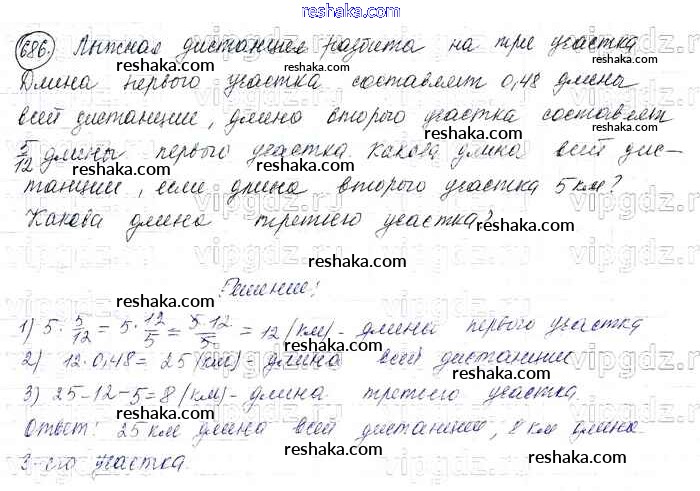 reshaka.ru
686. Лыжная дистанция разбита на три участка
reshaka.ru
Длина первого участка составляет 0,48 длины
всей дистанции, длина второго участка составляет
reshaka.ru
5/12 длины первого участка. Какова длина всей дис-
reshaka.ru
танции, если длина второго участка 5 км?
reshaka.ru
Какова длина третьего участка?
reshaka.ru
Решение:
reshaka.ru
1) 5 · 5/12 = 5 · 12/5 = 5·12/5 = 12 (км) - длины первого участка
reshaka.ru
2) 12 · 0,48 = 25 (км) - длина всей дистанции
reshaka.ru
3) 25-12-5=8 (км) - длина третьего участка.
reshaka.ru
Ответ: 25 км длина всей дистанции, 8 км длина
reshaka.ru
3-его участка.
reshaka.ru